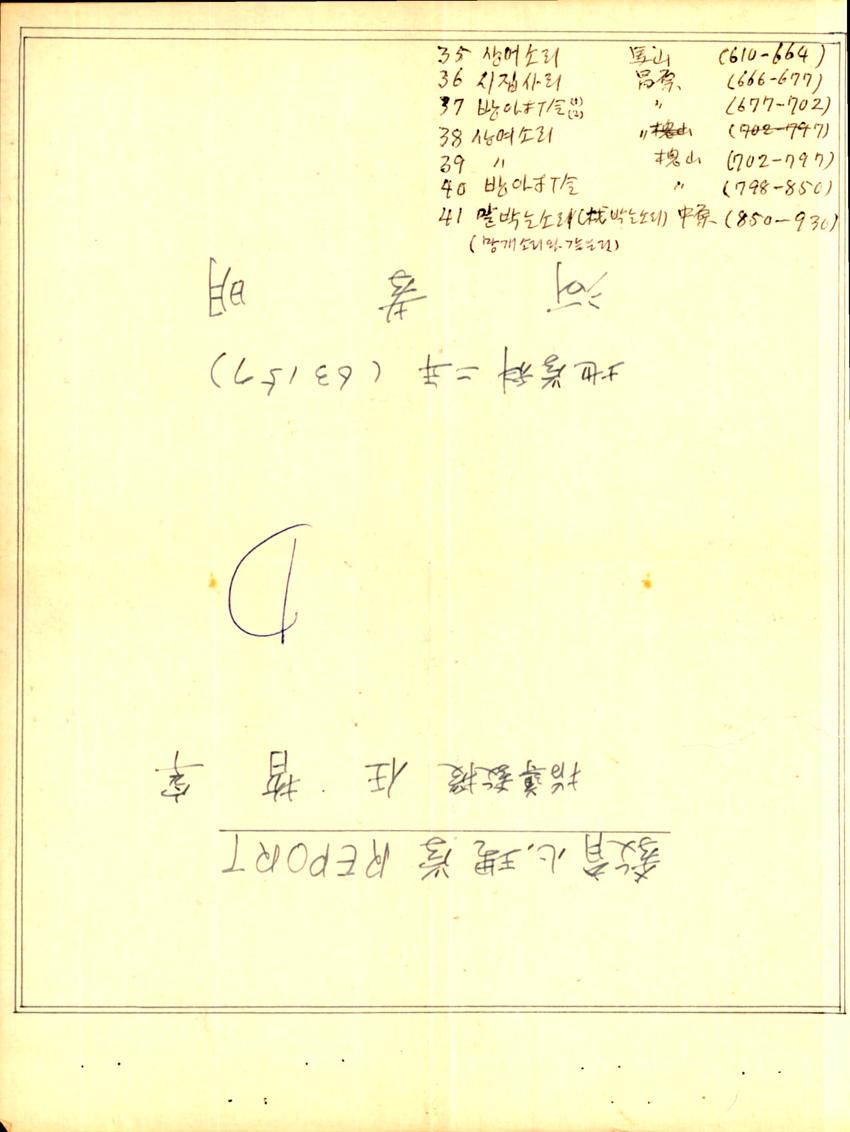 35 상여소리 馬山 (610-664)
36 시집사리 昌原 (666-677)
37 방아타령(1)(2) 〃 (677-702)
38 상여소리 〃槐山 (702-797)
39 〃 槐山 (702-797)
40 방아타령 〃 (798-850)
41 말박는소리(杙박는소리) 中原 (850-930)
(망개소리와 같은것)
教育心理学 REPORT
指導教授 任 晳 宰
D
地学科二年 (63157)
河 明